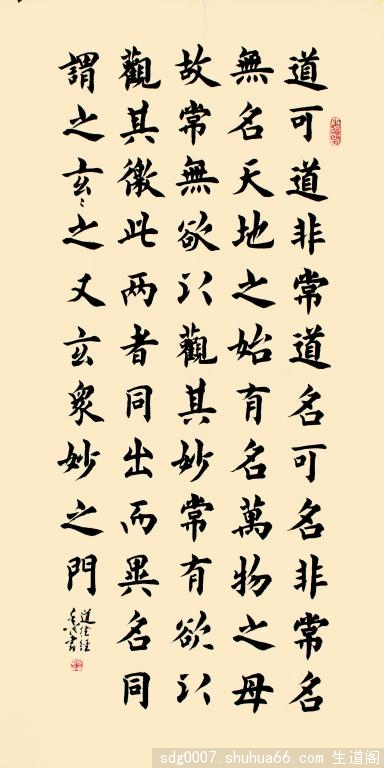 道可道非常道名可名非常名
無名天地之始有名萬物之母
故常無欲以觀其妙常有欲以
觀其徼此两者同出而異名同
謂之玄〻之又玄衆妙之門
道德經
書
sdg0007.shuhua66.com 生道阁